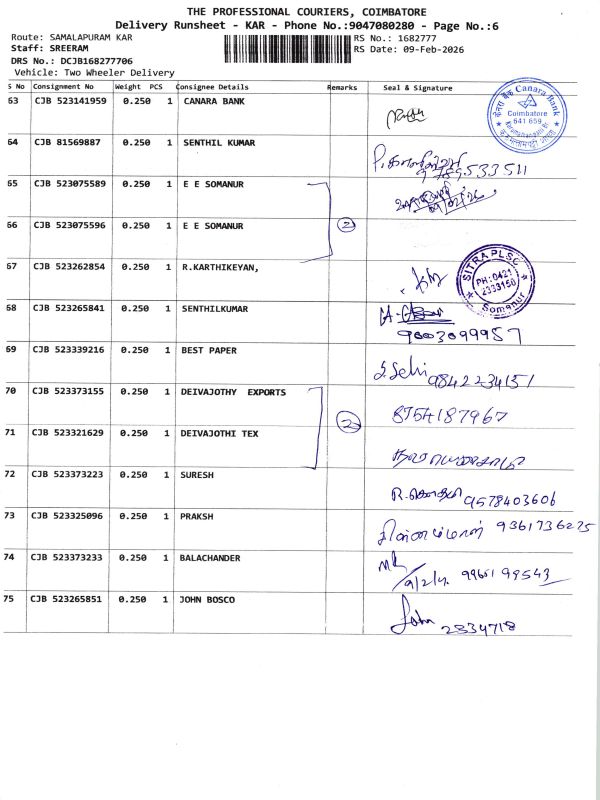 THE PROFESSIONAL COURIERS, COIMBATORE
Delivery Runsheet - KAR - Phone No.:9047080280 - Page No.:6
Route: SAMALAPURAM KAR
RS No.: 1682777
Staff: SREERAM
RS Date: 09-Feb-2026
DRS No.: DCJB168277706
Vehicle: Two Wheeler Delivery
S No Consignment No Weight PCS Consignee Details Remarks Seal & Signature
63 CJB 523141959 0.250 1 CANARA BANK
Canara Bank
Coimbatore
641 659
64 CJB 81569887 0.250 1 SENTHIL KUMAR
65 CJB 523075589 0.250 1 E E SOMANUR
66 CJB 523075596 0.250 1 E E SOMANUR
2
67 CJB 523262854 0.250 1 R.KARTHIKEYAN,
SITRA PLSC
PH: 0421
2333150
Somanur
68 CJB 523265841 0.250 1 SENTHILKUMAR
9003099957
69 CJB 523339216 0.250 1 BEST PAPER
S.Selvi 9842234151
70 CJB 523373155 0.250 1 DEIVAJOTHY EXPORTS
8754187967
2
71 CJB 523321629 0.250 1 DEIVAJOTHI TEX
72 CJB 523373223 0.250 1 SURESH
9578403606
73 CJB 523325096 0.250 1 PRAKSH
9361736225
74 CJB 523373233 0.250 1 BALACHANDER
75 CJB 523265851 0.250 1 JOHN BOSCO
John 2334718